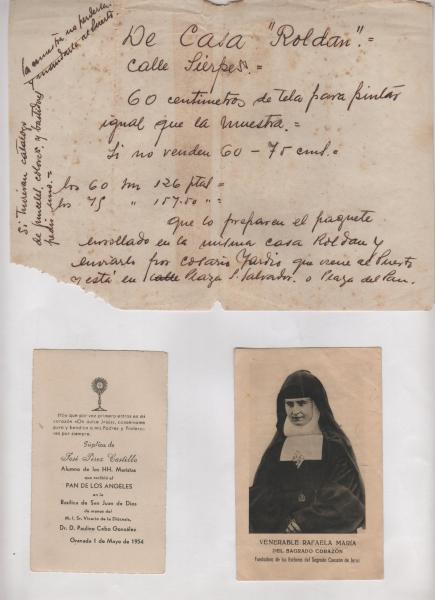 De Casa "Roldan".=
calle Sierpes.=
60 centimetros de tela para pintar
igual que la muestra.=
Si no venden 60 - 75 cmd.=
los 60 son 126 ptas=
los 75 " 157.50 "=
que lo preparen el paquete
enrollado en la misma casa Roldan y
enviarlo por cosario que viene al Puerto
y está en Plaza S. Salvador. o Plaza del Pan.
La muestra no perderla
y mandarla al Puerto
Si tuvieran catalogo
de pinceles, colores, y bastidores
pedir uno.=
Hoy que por vez primera entras en mi
corazón ¡Oh dulce Jesús!, consérvame
puro y bendice a mis Padres y Profesores
por siempre.
Súplica de
José Pérez Castillo
Alumno de los HH. Maristas
que recibió el
PAN DE LOS ANGELES
en la
Basílica de San Juan de Dios
de manos del
M. I. Sr. Vicario de la Diócesis,
Dr. D. Paulino Cobo González
Granada 1 de Mayo de 1954
VENERABLE RAFAELA MARÍA
DEL SAGRADO CORAZÓN
Fundadora de las Esclavas del Sagrado Corazón de Jesús